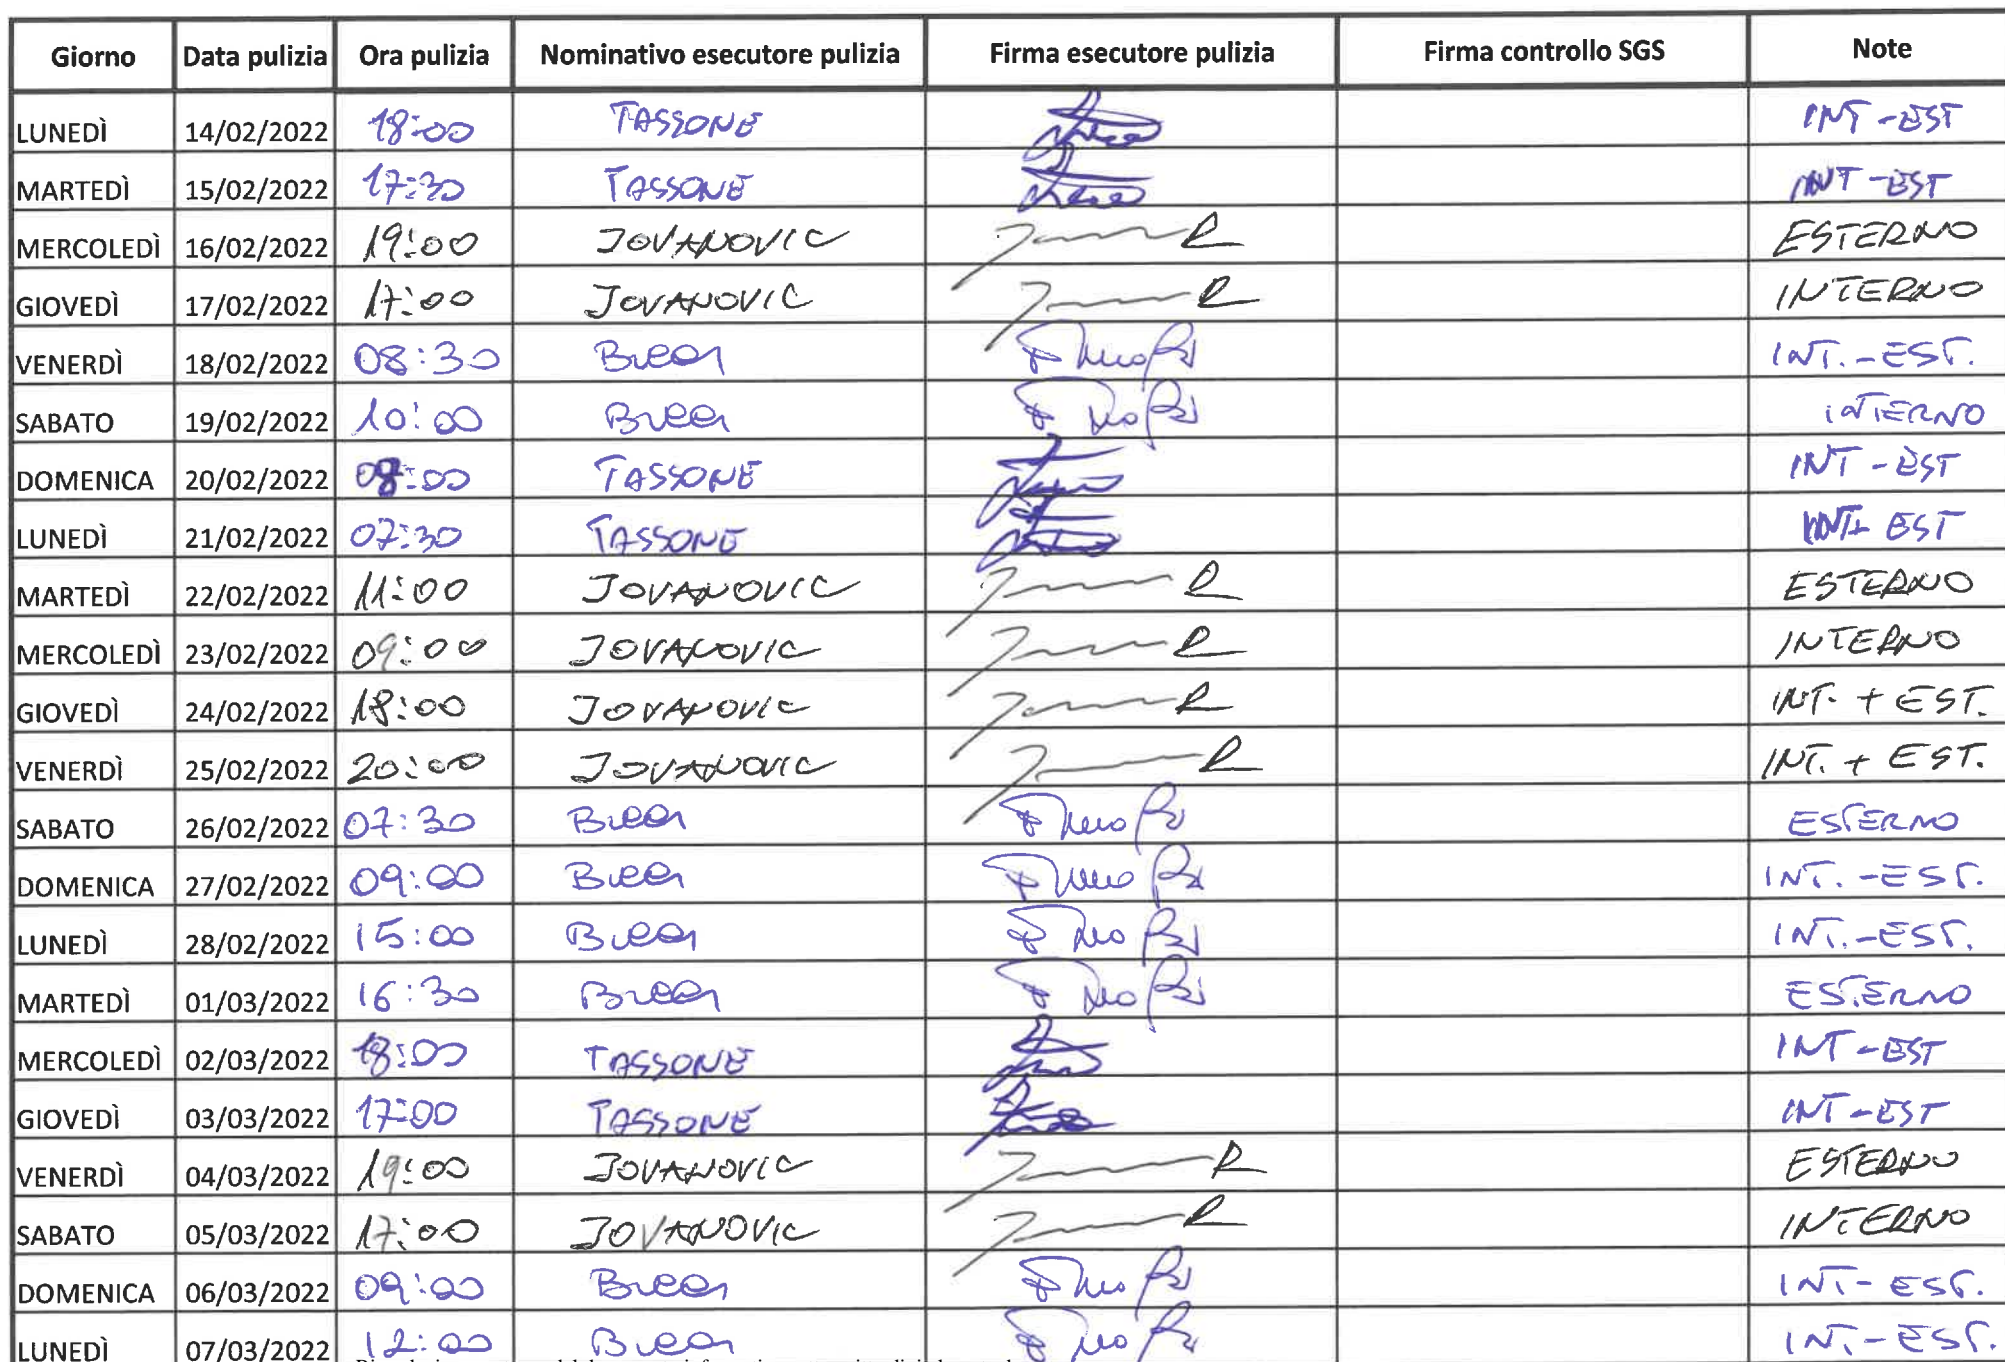 Giorno Data pulizia Ora pulizia Nominativo esecutore pulizia Firma esecutore pulizia Firma controllo SGS Note
LUNEDÌ 14/02/2022 18:00 TASSONE INT-EST
MARTEDÌ 15/02/2022 17:30 TASSONE INT-EST
MERCOLEDÌ 16/02/2022 19:00 JOVANOVIC ESTERNO
GIOVEDÌ 17/02/2022 17:00 JOVANOVIC INTERNO
VENERDÌ 18/02/2022 08:30 INT.-EST.
SABATO 19/02/2022 10:00 INTERNO
DOMENICA 20/02/2022 08:00 TASSONE INT-EST
LUNEDÌ 21/02/2022 07:30 TASSONE INT- EST
MARTEDÌ 22/02/2022 11:00 JOVANOVIC ESTERNO
MERCOLEDÌ 23/02/2022 09:00 JOVANOVIC INTERNO
GIOVEDÌ 24/02/2022 18:00 JOVANOVIC INT. + EST.
VENERDÌ 25/02/2022 20:00 JOVANOVIC INT. + EST.
SABATO 26/02/2022 07:30 ESTERNO
DOMENICA 27/02/2022 09:00 INT.-EST.
LUNEDÌ 28/02/2022 15:00 INT.-EST.
MARTEDÌ 01/03/2022 16:30 ESTERNO
MERCOLEDÌ 02/03/2022 18:00 TASSONE INT-EST
GIOVEDÌ 03/03/2022 17:00 TASSONE INT-EST
VENERDÌ 04/03/2022 19:00 JOVANOVIC ESTERNO
SABATO 05/03/2022 17:00 JOVANOVIC INTERNO
DOMENICA 06/03/2022 09:00 INT- EST.
LUNEDÌ 07/03/2022 12:00 INT.-EST.